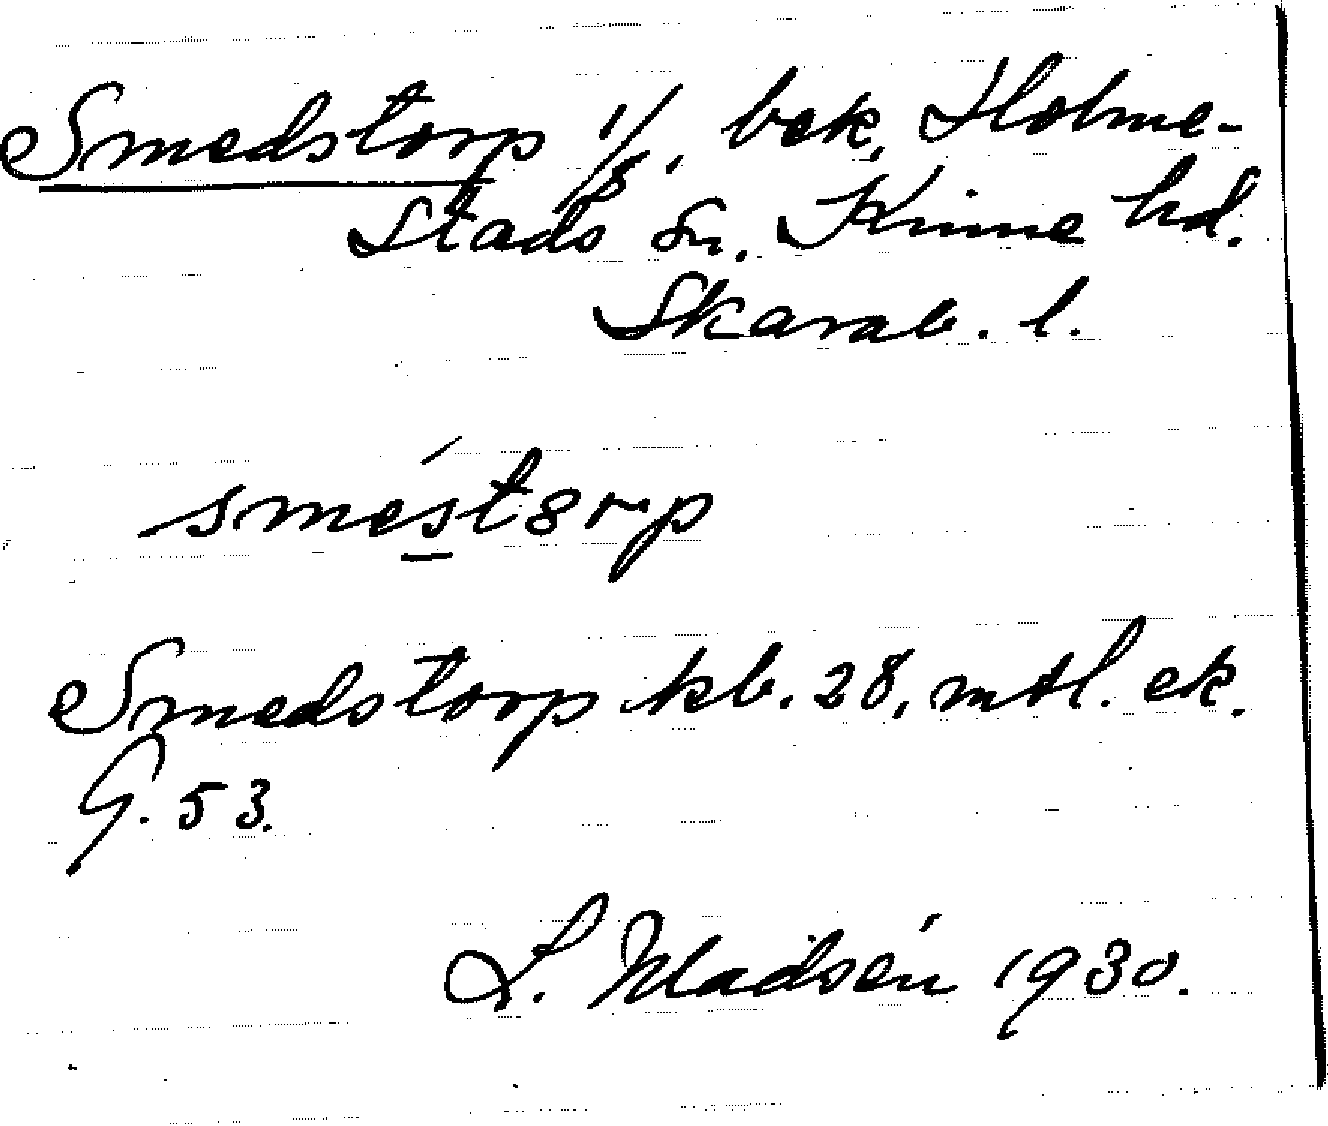 Smedstorp 1/8. bek. Holme-
stads sn. Kinne hd.
Skarab. l.
smèstorp
Smedstorp kb. 28, mtl. ek.
G. 53.
L. Madsén 1930.